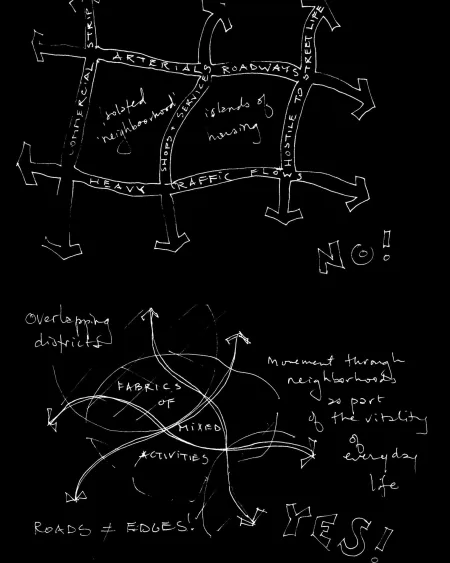 COMMERCIAL STRIP
ARTERIALS ROADWAYS
HOSTILE TO STREET LIFE
'isolated
neighbourhood'
SHOPS + SERVICES
islands of
housing
HEAVY TRAFFIC FLOWS
NO!
Overlapping
districts
FABRICS
OF
MIXED
ACTIVITIES
Movement through
neighborhoods
as part
of the vitality
of
everyday
life
ROADS ≠ EDGES!
YES!